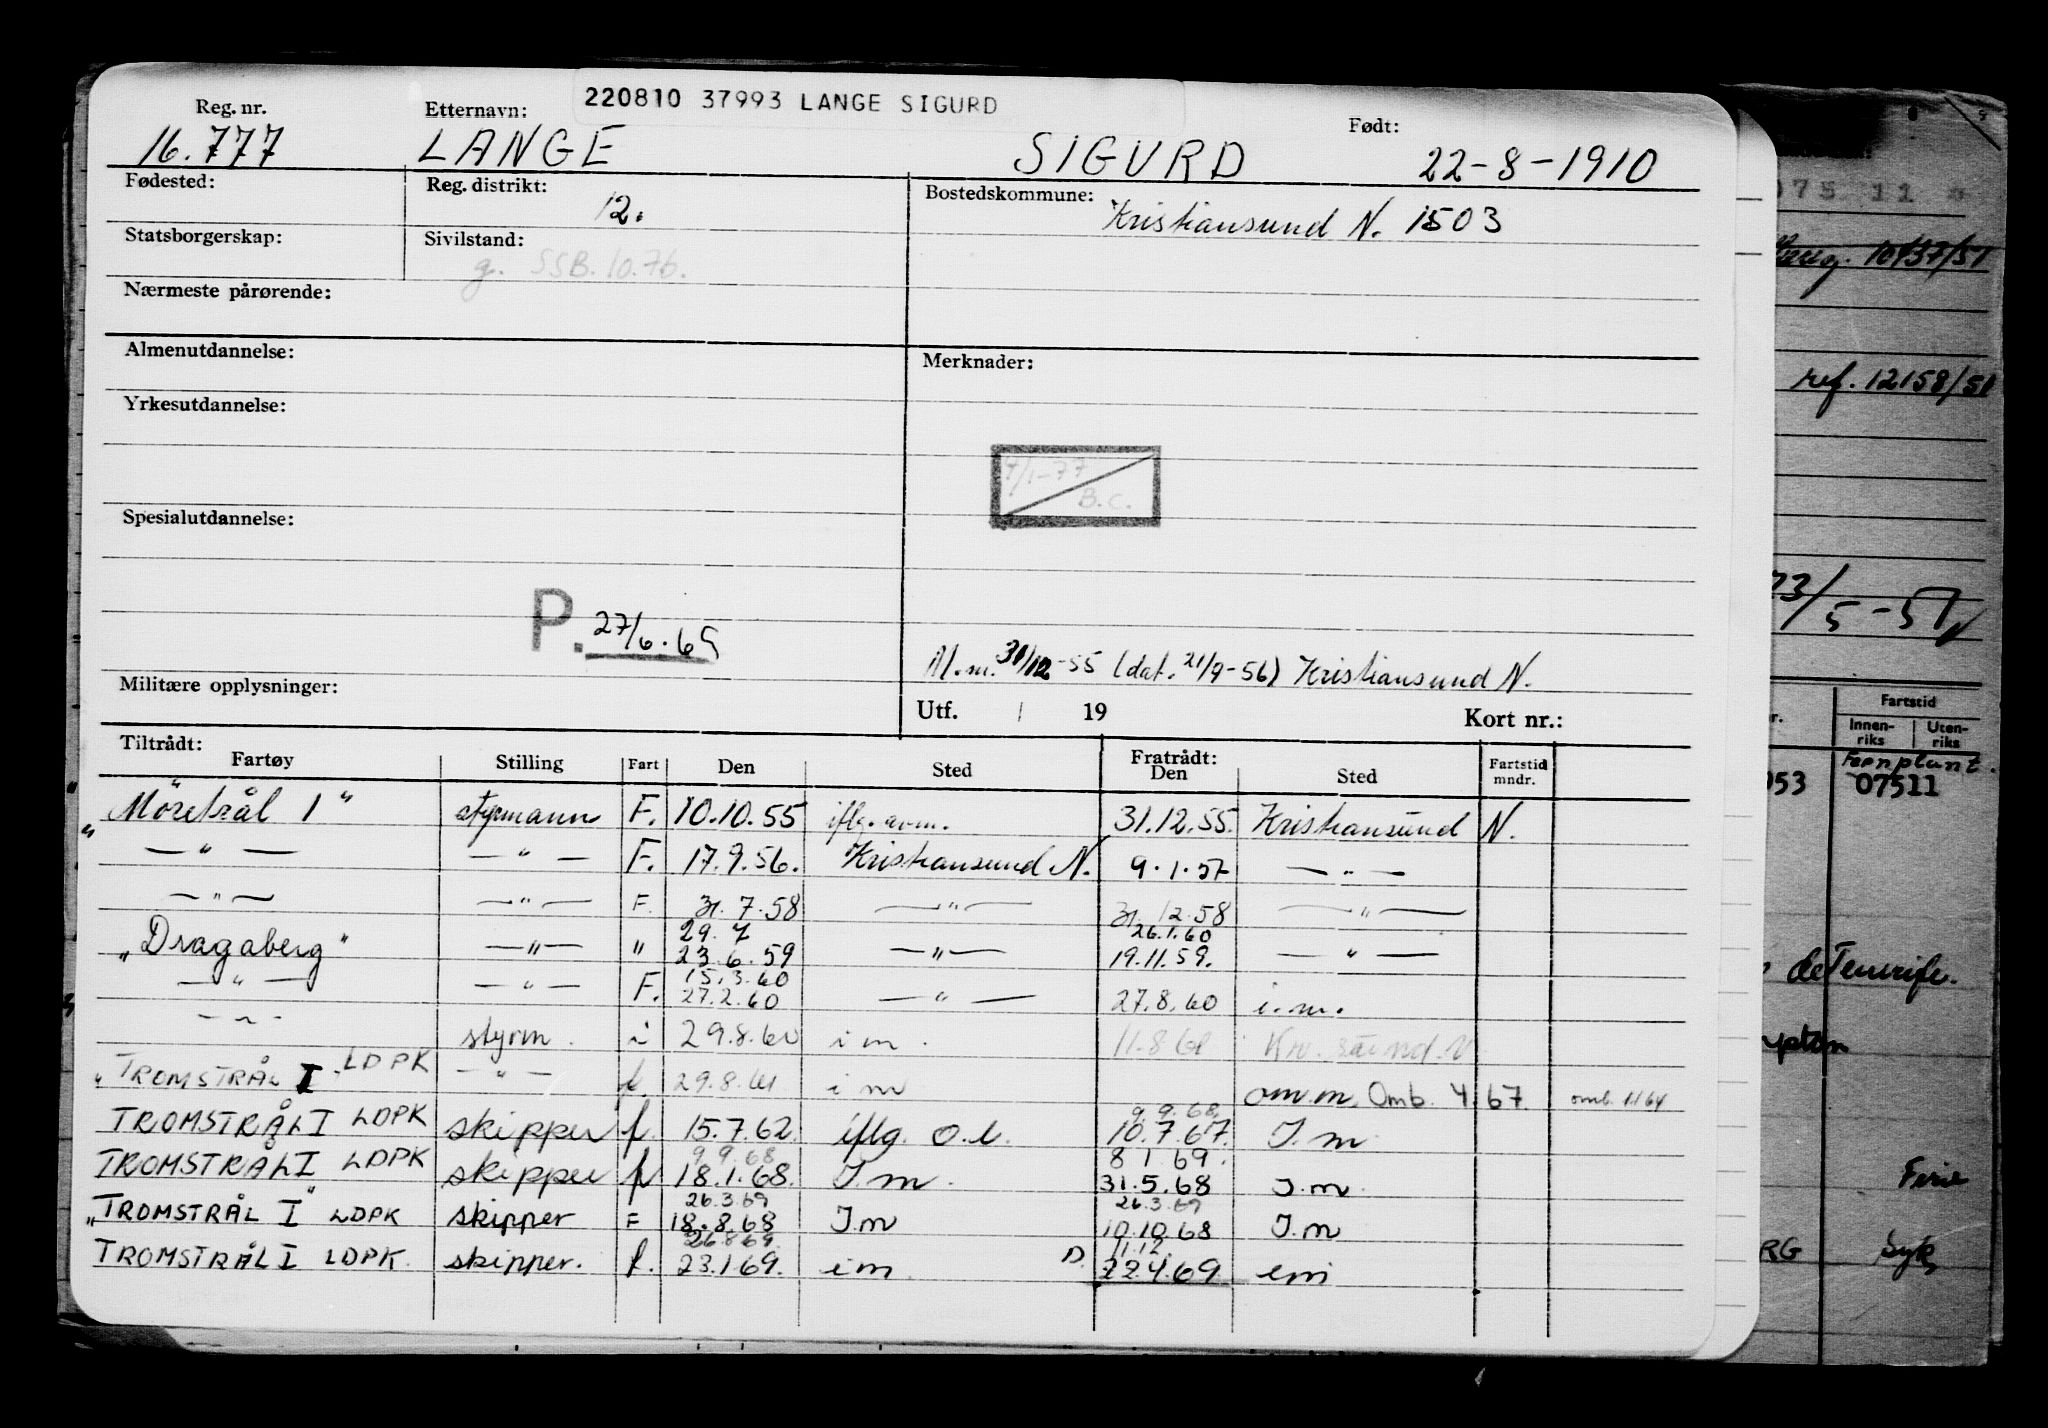 220810 37993 LANGE SIGURD
Reg. nr. Etternavn: Født:
16.777 LANGE SIGURD 22-8-1910
Fødested: Reg. distrikt: 12. Bostedskommune: Kristiansund N. 1503
Statsborgerskap: Sivilstand: g. SSB. 10.76.
Nærmeste pårørende:
Almenutdannelse: Merknader:
Yrkesutdannelse:
7/1-77
B.C.
Spesialutdannelse:
P. 27/6.65
Al.m. 31/12-55 (dat. 21/9-56) Kristiansund N.
Militære opplysninger: Utf. / 19 Kort nr.:
Tiltrådt: Fratrådt:
Fartøy Stilling Fart Den Sted Den Sted Fartstid mndr.
"Möretrål 1" styrmann F. 10.10.55 iflg. avm. 31.12.55. Kristiansund N.
— " — — " — F. 17.9.56. Kristiansund N. 9.1.57 — " —
— " — — " — F. 31.7.58 — " — 31.12.58 — " —
29.7 26.1.60
"Dragaberg" — " — " 23.6.59 — " — 19.11.59. — " —
15.3.60
— " — — " — F. 27.2.60 — " — 27.8.60 i.m.
— " — styrm. i 29.8.60 i m. 11.8.61 Kr. sund. N
"TROMSTRÅL I" LDPK — " — f. 29.8.61 i m om.m. Omb. 4.67. omb. 11/64
9.9.68
TROMSTRÅL I LDPK skipper f. 15.7.62. iflg. o.l. 10.7.67. I.m.
9.9.68 8 1 69.
TROMSTRÅL I LDPK skipper f 18.1.68. I.m. 31.5.68 I.m.
26.3.69 26.3.69
"TROMSTRÅL I" LDPK skipper F 18.8.68 I.m 10.10.68 I.m
26.8.69. 11.12.
TROMSTRÅL I LDPK. skipper. f. 23.1.69. i m. D. 22.4.69 em
075 11
10437/51
ref. 12158/51
/5-57
Fartstid
Innen-riks Uten-riks
053 07511
de Tenerife.
Ferie
RG Syk